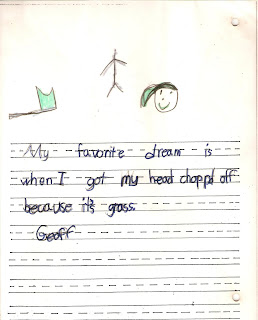 My favorite dream is
when I got my head choppd off
because it's grass.
Geoff